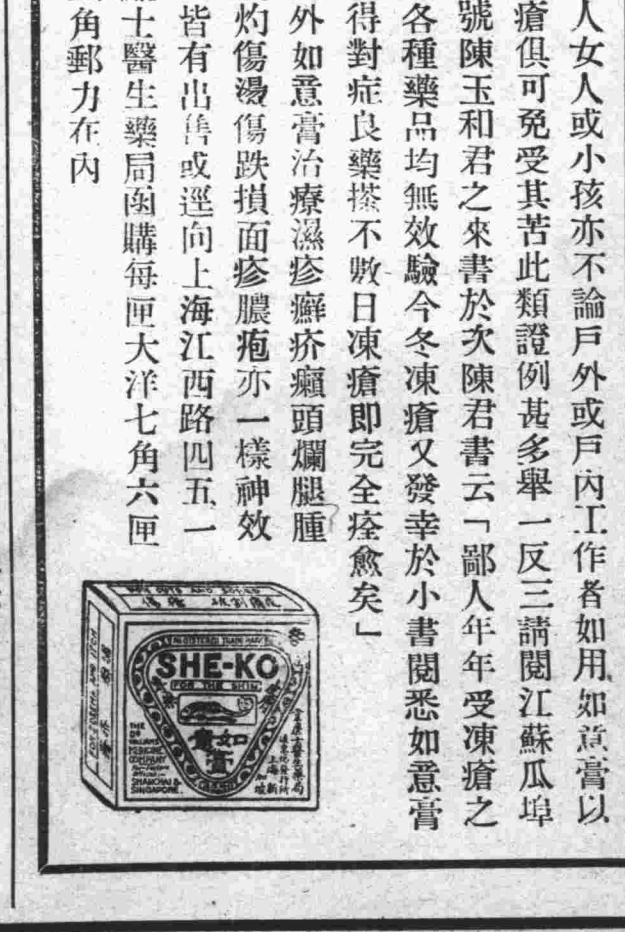 人女人或小孩亦不論戶外或戶內工作者如用如意膏以
瘡俱可免受其苦此類證例甚多舉一反三請閱江蘇瓜埠
號陳玉和君之來書於次陳君書云「鄙人年年受凍瘡之
各種藥品均無效驗今冬凍瘡又發幸於小書閱悉如意膏
得對症良藥搽不數日凍瘡即完全痊愈矣」
外如意膏治療濕疹癬疥癩頭爛腿腫
灼傷湯傷跌損面疹膿疱亦一樣神效
皆有出售或逕向上海江西路四五一
士醫生藥局函購每匣大洋七角六匣
角郵力在內
SHE-KO
FOR THE SKIN
如意膏
THE
DR
WILLIAMS
MEDICINE
COMPANY
SHANGHAI &
SINGAPORE